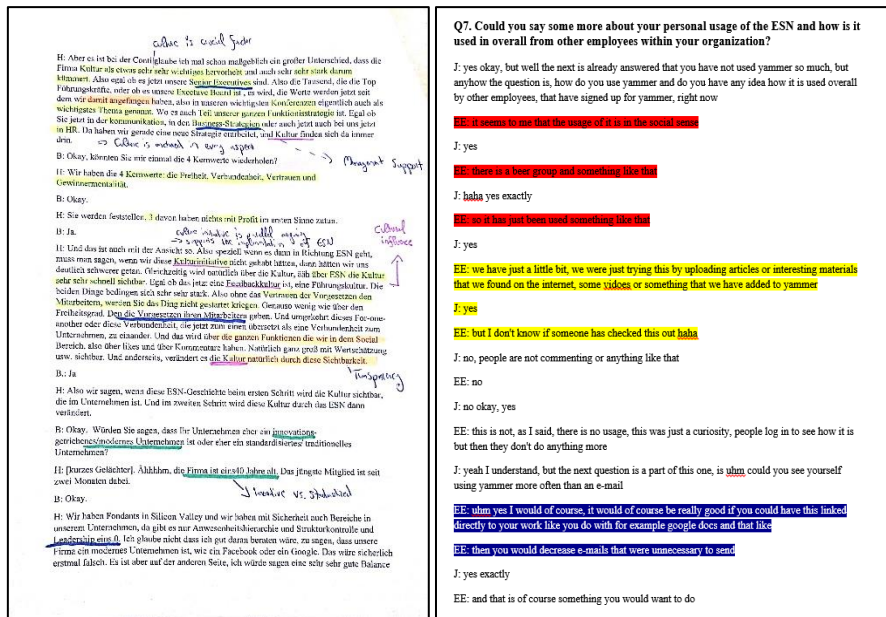 culture is crucial factor
H: Aber es ist bei der Conti glaube ich mal schon maßgeblich ein großer Unterschied, dass die
Firma Kultur als etwas sehr sehr wichtiges hervorhebt und auch sehr sehr stark darum
kümmert. Also egal ob es jetzt unsere Senior Executives sind. Also die Tausend, die die Top
Führungskräfte, oder ob es unsere Executive Board ist, es wird, die Werte werden jetzt seit
dem wir damit angefangen haben, also in unseren wichtigsten Konferenzen eigentlich auch als
wichtigstes Thema genannt. Wo es auch Teil unserer ganzen Funktionsstrategie ist. Egal ob
Sie jetzt in der kommunikation, in den Business-Strategien oder auch jetzt auch bei uns jetzt
in HR. Da haben wir gerade eine neue Strategie erarbeitet, und Kultur finden sich da immer
drin.
culture is anchored in every aspect
Management Support
B: Okay, könnten Sie mir einmal die 4 Kernwerte wiederholen?
H: Wir haben die 4 Kernwerte: die Freiheit, Verbundenheit, Vertrauen und
Gewinnermentalität.
B: Okay.
H: Sie werden feststellen, 3 davon haben nichts mit Profit im ersten Sinne zutun.
B: Ja.
culture initiative is
supports the implementation of ESN
cultural
influence
H: Und das ist auch mit der Ansicht so. Also speziell wenn es dann in Richtung ESN geht,
muss man sagen, wenn wir diese Kulturinitiative nicht gehabt hätten, dann hätten wir uns
deutlich schwerer getan. Gleichzeitig wird natürlich über die Kultur, ääh über ESN die Kultur
sehr sehr schnell sichtbar. Egal ob das jetzt eine Feedbackkultur ist, eine Führungskultur. Die
beiden Dinge bedingen sich sehr sehr stark. Also ohne das Vertrauen der Vorgesetzten den
Mitarbeitern, werden Sie das Ding nicht gestartet kriegen. Genauso wenig wie über den
Freiheitsgrad. Den die Vorgesetzten ihren Mitarbeitern geben. Und umgekehrt dieses For-one-
another oder diese Verbundenheit, die jetzt zum einen übersetzt als eine Verbundenheit zum
Unternehmen, zu einander. Und das wird über die ganzen Funktionen die wir in dem Social
Bereich, also über likes und über Kommentare haben. Natürlich ganz groß mit Wertschätzung
usw. sichtbar. Und anderseits, verändert es die Kultur natürlich durch diese Sichtbarkeit.
B.: Ja
Transparency
H: Also wir sagen, wenn diese ESN-Geschichte beim ersten Schritt wird die Kultur sichtbar,
die im Unternehmen ist. Und im zweiten Schritt wird diese Kultur durch das ESN dann
verändert.
B: Okay. Würden Sie sagen, dass Ihr Unternehmen eher ein innovations-
getriebenes/modernes Unternehmen ist oder eher ein standardisiertes/ traditionelles
Unternehmen?
H: [kurzes Gelächter]. Ähhhhm, die Firma ist eins40 Jahre alt. Das jüngste Mitglied ist seit
zwei Monaten dabei.
vs.
B: Okay.
H: Wir haben Fondants in Silicon Valley und wir haben mit Sicherheit auch Bereiche in
unserem Unternehmen, da gibt es nur Anwesenheitshierarchie und Strukturkontrolle und
Leadership eins.0. Ich glaube nicht dass ich gut daran beraten wäre, zu sagen, dass unsere
Firma ein modernes Unternehmen ist, wie ein Facebook oder ein Google. Das wäre sicherlich
erstmal falsch. Es ist aber auf der anderen Seite, ich würde sagen eine sehr sehr gute Balance
Q7. Could you say some more about your personal usage of the ESN and how is it
used in overall from other employees within your organization?
J: yes okay, but well the next is already answered that you have not used yammer so much, but
anyhow the question is, how do you use yammer and do you have any idea how it is used overall
by other employees, that have signed up for yammer, right now
EE: it seems to me that the usage of it is in the social sense
J: yes
EE: there is a beer group and something like that
J: haha yes exactly
EE: so it has just been used something like that
J: yes
EE: we have just a little bit, we were just trying this by uploading articles or interesting materials
that we found on the internet, some vidoes or something that we have added to yammer
J: yes
EE: but I don't know if someone has checked this out haha
J: no, people are not commenting or anything like that
EE: no
J: no okay, yes
EE: this is not, as I said, there is no usage, this was just a curiosity, people log in to see how it is
but then they don't do anything more
J: yeah I understand, but the next question is a part of this one, is uhm could you see yourself
using yammer more often than an e-mail
EE: uhm yes I would of course, it would of course be really good if you could have this linked
directly to your work like you do with for example google docs and that like
EE: then you would decrease e-mails that were unnecessary to send
J: yes exactly
EE: and that is of course something you would want to do